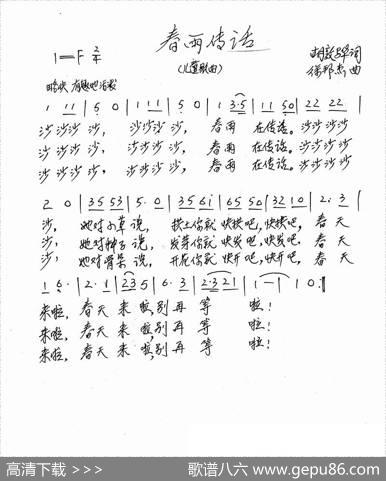 春雨传话
(儿童歌曲)
1=F 2/4
词
曲
1 1 1 | 5 0 | 1 1 1 | 5 0 | 1 3·5 | 1 1 5 0 | 2 2 2 2 |
沙 沙沙 沙, 沙沙沙 沙, 春雨 在传话。沙沙沙沙
沙 沙沙 沙, 沙沙沙 沙, 春雨 在传话。沙沙沙沙
沙 沙沙 沙, 沙沙沙 沙, 春雨 在传话。沙沙沙沙
2 0 | 3 5 5 3 | 5· 0 | 3 5 6 i | 6 5 5 0 | 3 2 1 0 | 2· 3 |
沙, 她对小草说, 你就快快吧,快快吧, 春天
沙, 她对种子说, 发芽你就快发吧,快发吧, 春天
沙, 她对骨朵说, 开花你就快开吧,快开吧, 春天
1 6· | 2· 1 | 2 3 5 | 6· 3 | 2·3 2 1 | 1 - | 1 0 ‖
来啦, 春天来啦,别再等啦!
来啦, 春天来啦,别再等啦!
来啦, 春天来啦,别再等啦!
高清下载 >>>
歌谱八六 www.gepu86.com